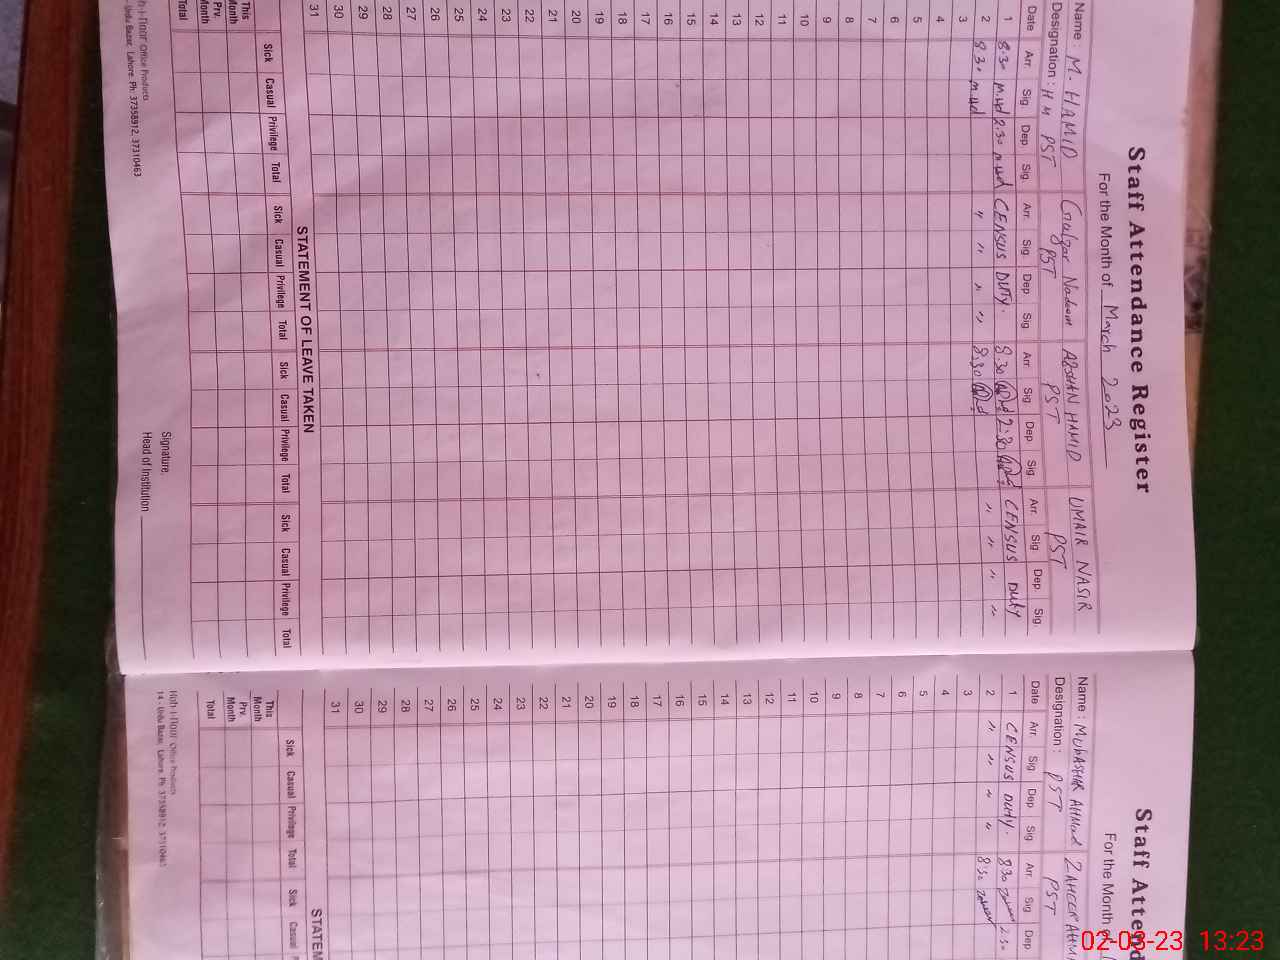 Staff Attendance Register
For the Month of March 2023
Name : M. HAMID Gulzar Nadeem ABSHAN HAMID UMAIR NASIR
Designation : H M PST PST PST PST
Date Arr. Sig Dep Sig. Arr. Sig Dep Sig Arr Sig Dep Sig. Arr. Sig Dep Sig.
1 8.30 m.Hd 2.30 m.Hd CENSUS DUTY. 8.30 2:30 CENSUS DUTY
2 8.30 m.Hd 〃 〃 〃 〃 8.30 〃 〃 〃 〃
3
4
5
6
7
8
9
10
11
12
13
14
15
16
17
18
19
20
21
22
23
24
25
26
27
28
29
30
31
STATEMENT OF LEAVE TAKEN
Sick Casual Privilege Total Sick Casual Privilege Total Sick Casual Privilege Total Sick Casual Privilege Total
This Month
Prv. Month
Total
Signature.
Head of Institution
Office Products
Urdu Bazar, Lahore. Ph: 37358912, 37310463
Staff Attend
For the Month of
Name : MUBASHAR AHMAD ZAHEER AHM
Designation : PST PST
Date Arr. Sig Dep Sig Arr. Sig Dep
1 CENSUS DUTY. 8.30 2.30
2 〃 〃 〃 〃 8.30
3
4
5
6
7
8
9
10
11
12
13
14
15
16
17
18
19
20
21
22
23
24
25
26
27
28
29
30
31
STATEM
Sick Casual Privilege Total Sick Casual P
This Month
Prv. Month
Total
Office Products
14 - Urdu Bazar, Lahore. Ph: 37358912, 37310463
02-03-23 13:23